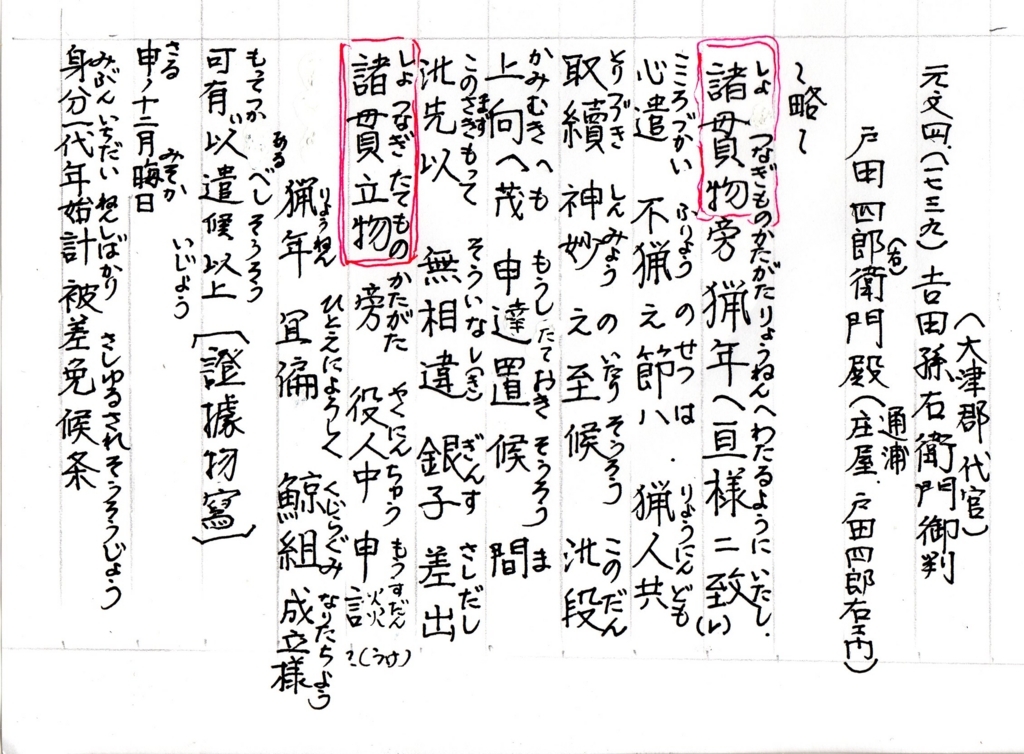 (大津郡代官)
元文四.(一七三九)吉田孫右衛門御判
(右) 通浦
戸田四郎衛門殿(庄屋.戸田四郎右エ門)
〜略〜
しょ つなぎものかたがたりょうねんへわたるようにいたし.
諸貫物旁猟年へ亘様ニ致(し)
こころづかい ふりょう のせつ は . りょうにんども
心遣 不猟え節ハ. 猟人共
とりつづき しんみょう の いたり そうろう このだん
取續 神妙え至候 此段
かみむきへも もうしたておき そうろう ま
上向へ茂 申達置候 間
このさきまずもって そういなし(き) ぎんす さしだし
此先以 無相違 銀子差出
しょ つなぎ たてもの かたがた やくにんちゅう もうすだん
諸貫立物旁 役人中申 ?(うけ)
りょうねん ひとえによろしく くじらぐみ なりたちよう
猟年 冝偏 鯨組成立様
もってつか ある べし そうろう いじょう
可有以遣候以上 [證據物寫]
さる みそか
申ノ十二月晦日
みぶん いちだい ねんしばかり さしゆるされそうろうじょう
身分一代年始計 被差免候条